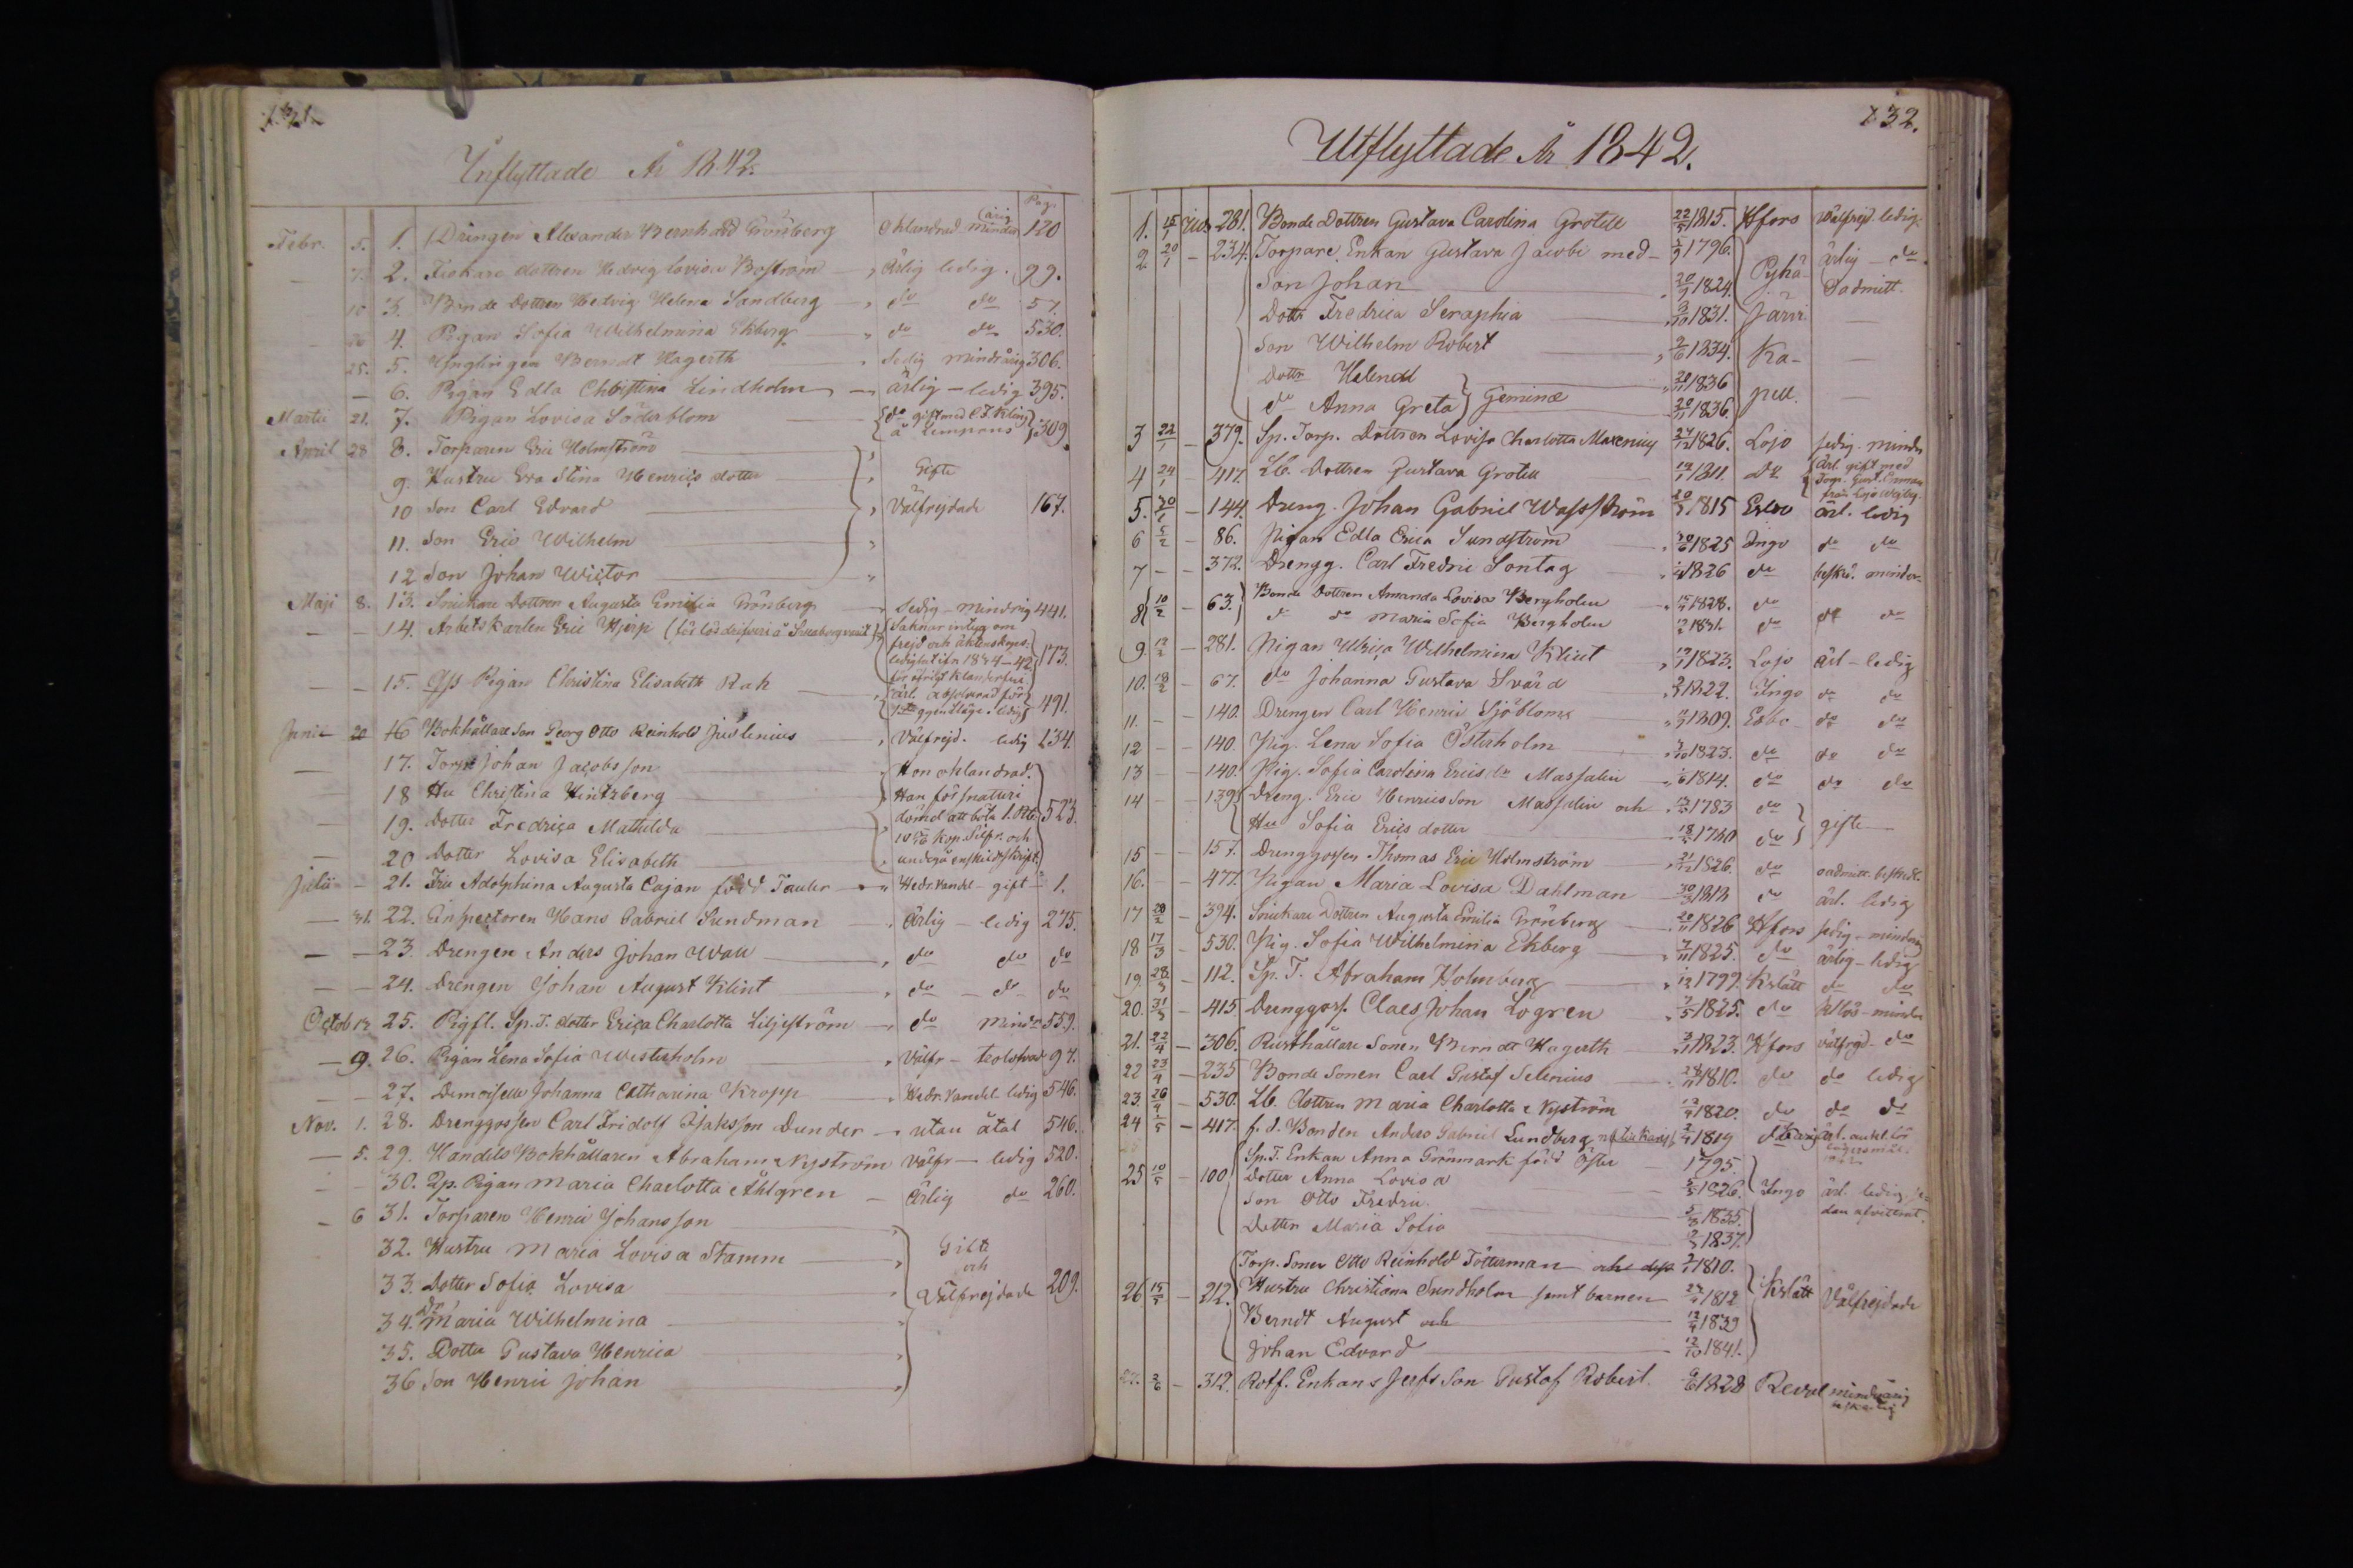 Inflyttade År 1842.
Pag.
Febr. 5. 1. Drängen Alexander Bernhard Grönberg Oklandrad minderårig 120
7. 2. Fiskare dottren Hedvig Lovisa Boström Ärlig ledig. 99.
10 3. Bonde Dottren Hedvig Helena Sandberg do do 57.
4. Pigan Sofia Wilhelmina Ekberg do do 530.
25. 5. Ynglingen Berndt Hagerth ledig mindrårig 306.
— 6. Pigan Edla Christina Lindholm ärlig – ledig 395.
Martii 21. 7. Pigan Lovisa Söderblom do gift med C. F. Kling å Limpans 309.
April 28 8. Torparen Eric Holmström
9. Hustru Eva Stina Henrics dotter Gifte
10 Son Carl Edvard Välfrejdade 167.
11. Son Eric Wilhelm
12 Son Johan Wictor
Maji 8. 13. Snickare Dottren Augusta Emilia Grönberg ledig – mindrig 441.
— — 14. Arbets Karlen Eric Hjerp (för lösdrifveri å Sveaborg varit) Saknar intyg om
frejd och äktenskaps-
ledighet ifr. 1834–42 173.
för öfrigt klanderfri
— — 15. Pigan Christina Elisabeth Rak ärl. absolverad för
1sta ggen Läge. ledig 491.
Junii 20 16 Bokhållare Son Georg Otto Reinhold Juslenius Välfrejd. ledig 234.
— 17. Torp. Johan Jacobsson Hon oklandrad.
18 Hu Christina Hintzberg Han för snatteri
— 19. Dotter Fredrica Mathilda dömd att böta 1. Rbl. 523.
— 20 Dotter Lovisa Elisabeth kop. Silfr. och
undergå enskildt skrift.
Julii – 21. Fru Adolphina Augusta Cajan född Tauler Hedr. Vandel – gift 1.
— 31. 22. Inspectoren Hans Gabriel Sundman Ärlig – ledig 275.
— — 23. Drengen Anders Johan Wall do do do
— — 24. Drengen Johan August Klint do – do do
Octob 25. Pigfl. Sp. T. dotter Erica Charlotta Liljeström do mindr 559.
— 9. 26. Pigan Lena Sofia Westerholm Välfr – 97.
— — 27. Demoiselle Johanna Catharina Kropp Hedr. Vandel ledig 546.
Nov. 1. 28. Drenggossen Carl Fridolf Isaksson Dunder utan åtal 546.
— 5. 29. Handels Bokhållaren Abraham Nyström Välfr – ledig 520.
— 30. Sp. Pigan Maria Charlotta Åhlgren Ärlig do 260.
— 6 31. Torparen Henric Johansson
32. Hustru Maria Lovisa Stamm Gifte
33. Dotter Sofia Lovisa och
34. Dr Maria Wilhelmina Välfrejdade 209.
35. Dotter Gustava Henrica
36 Son Henric Johan
232.
Utflyttade År 1842.
1. 15/1 281. Bonde Dottren Gustava Carolina Grotell 1815. Hfors Wälfrejd. ledig.
2 20/1 – 234. Torpare Enkan Gustava Jacobi med 1796. ärlig – do
Son Johan 1824. Pyhä- Oadmitt.
Dottr Fredrica Seraphia 1831. järvi
Son Wilhelm Robert 1834. Ka-
Dottr Helena 1836
do Anna Greta Geminæ 1836. pell.
3 22/1 – 379. Sp. Torp. Dottren Lovisa Charlotta Maxenius 1826. Lojo ledig – mindr
4 24/1 – 417. Lb. Dottren Gustava Grotell 1811. do ärl. gift med
Torp. Gust. Enman
från Lojo
5. 30/1 – 144. Dreng. Johan Gabriel Wasström 1815 Esbo ärl. ledig
6 5/2 – 86. Pigan Edla Erica Sundström 1825 Ingo do do
7 – – 372. Drengg. Carl Fredric Sontag 1826 do beskd. minder.
8 10/2 – 63. Bonde Dottren Amanda Lovisa Bergholm 1828. do
do do Maria Sofia Bergholm 1831. do do do
9. 12/2 – 281. Pigan Ulrica Wilhelmina Klint 1823. Lojo ärl – ledig
10. 18/2 – 67. do Johanna Gustava Svärd 1822. Ingo do do
11. – – 140. Drengen Carl Henric Sjöblom 1809. Esbo do do
12 – – 140. Pig. Lena Sofia Österholm 1823. do do do
13 – – 140. Pig. Sofia Carolina Ericsdr Massalin 1814. do do do
14 – – 139. Dreng. Eric Henricsson Massalin och 1783 do
Hu Sofia Erics dotter 1780 do gifte
15 – – 157. Drenggossen Thomas Eric Holmström 1826. do oadmitt. beskedl.
16. – – 477. Pigan Maria Lovisa Dahlman 1818 do ärl. ledig
17 28/2 – 394. Snickare Dottren Augusta Emilia Grönberg 1826 Hfors ledig – mindrig
18 17/3 – 530. Pig. Sofia Wilhelmina Ekberg 1825. do ärlig – ledig
19. 28/3 – 112. Sp. T. Abraham Holmberg 1799. Kslätt do do
20. 31/3 – 415 Drenggoss. Claes Johan Logren 1825. do – mindr
21. 22/4 – 306. Rusthållare Sonen Berndt Hagerth 1823. Hfors välfrejd – do
22 23/4 – 235 Bonde Sonen Carl Gustaf Selenius 1810. do do ledig
23 26/4 – 530. Lb. dottren Maria Charlotta Nyström 1820. do do do
24 /5 – 417. f. d. Bonden Anders Gabriel Lundberg 1819
Sp. T. Enkan Anna Grönmark född Öster 1795.
25 10/5 – 100 Dotter Anna Lovisa 1826. Ingo ärl. ledig
Son Otto Fredric 1835. dan afvittrat.
Dotter Maria Sofia 1837.
Torp. Sonen Otto Reinhold Tötterman 1810.
26 15/5 – 212. Hustru Christiana Sundholm samt barnen 1812 Kslätt Välfrejdade
Berndt August och 1839
Johan Edvard 1841.
27. 2/6 – 312. Rotf. Enkans Son Gustaf Robert. 1828 Reval mindrårig